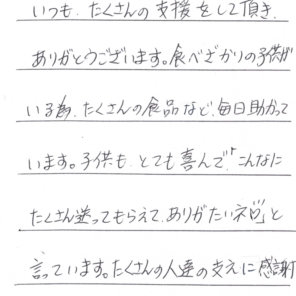 いつも、たくさんの支援をして頂き、
ありがとうございます。食べざかりの子供が
いる為、たくさんの食品など、毎日助かって
います。子供も、とても喜んで、「こんなに
たくさん送ってもらえて、ありがたいネ!」と
言っています。たくさんの人達の支えに感謝